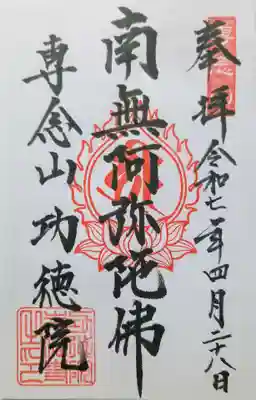 奉拝
令和七年四月二十八日
南無阿弥陀佛
専念山功徳院